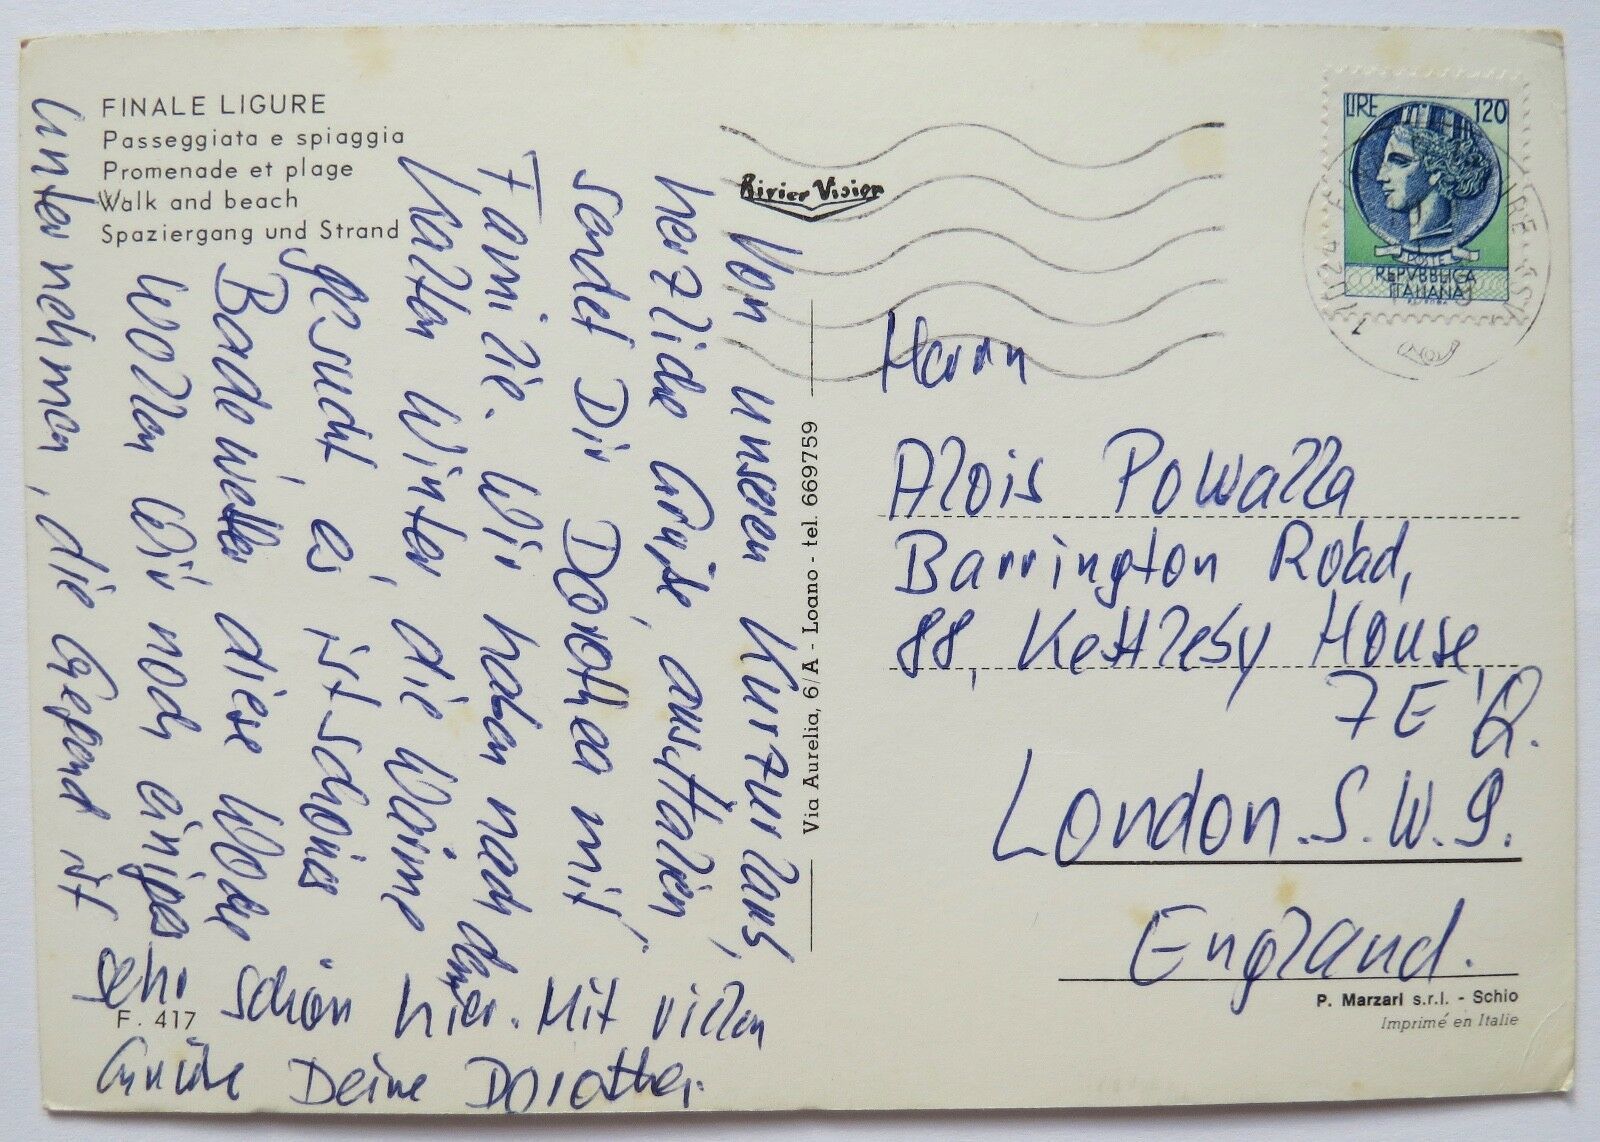 FINALE LIGURE
Passeggiata e spiaggia
Promenade et plage
Walk and beach
Spaziergang und Strand
Rivier Vision
LIRE 120
POSTE
REPVBBLICA
ITALIANA
Von unseren Kurzurlaub,
herzliche Grüße, aus Italien,
sendet Dir Dorothea mit
Familie. Wir haben nach dem
kalten Winter, die Wärme
gesucht, es ist schönes
Badewetter, diese Woche
wollen wir noch einiges
unternehmen, die Gegend ist
sehr schön hier. Mit vielen
Grüße Deine Dorothea.
Via Aurelia, 6/A - Loano - tel. 669759
Herrn
Alois Powalla
Barrington Road,
88, Kettleby House,
London. S.W.9.
England.
P. Marzari s.r.l. - Schio
Imprimé en Italie
F. 417